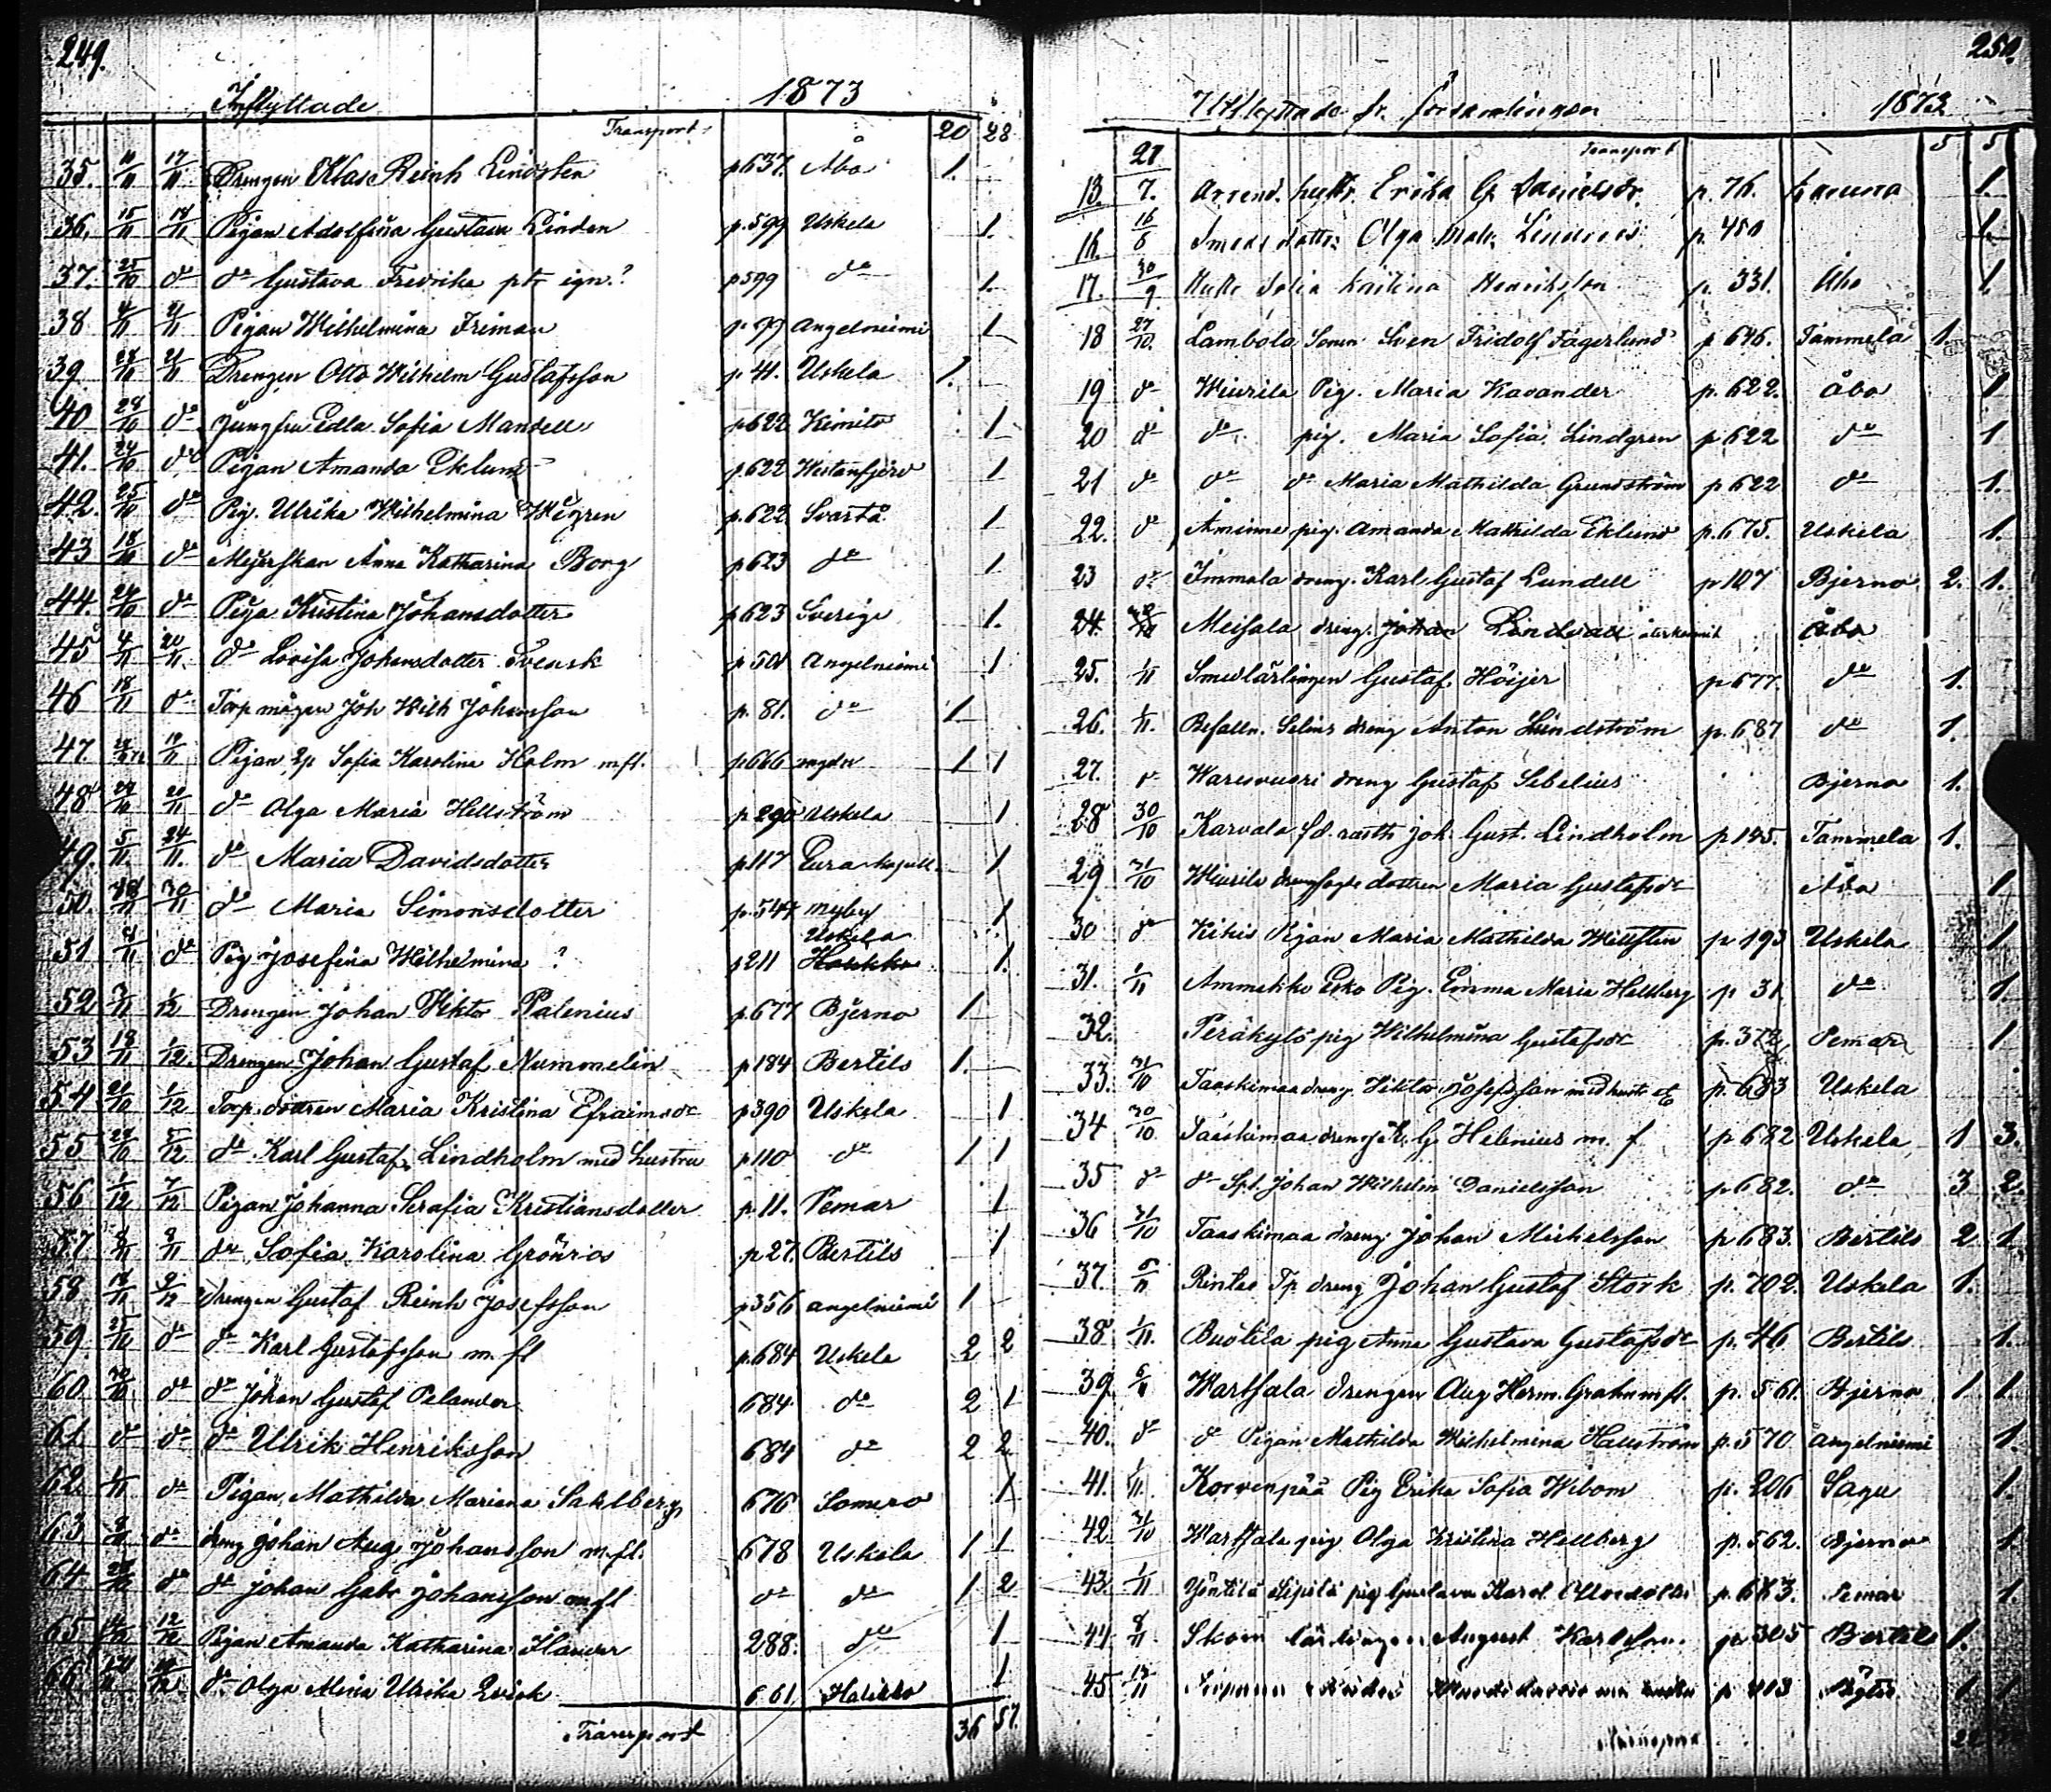 249.
Inflyttade 1873
Transport 20 28
35. 10/11 17/11 Drengen Klas Reinh Lindsten p 637. Åbo 1.
36. 15/11 18/11 Pigan Adolfina Gustava Linden p. 599 Uskela 1.
37. 25/10 do do Gustava Fredrika p 599 do 1.
38 4/11 21/11 Pigan Wilhelmina Friman Angelniemi 1
39 28/10 21/11 Drengen Otto Wilhelm Gustafsson p. 41. Uskela 1.
40 24/10 do Jungfru Edla Sofia Mandell p 622 Kimito 1
41. 24/10 do Pigan Amanda Eklund p. 622 Westanfjerd 1
42. 25/10 do Pig. Ulrika Wilhelmina Wegren p. 622 Svartå 1
43 18/10 do Mejerskan Anna Katharina Borg p 623 do 1
44. 24/10 do Piga Kristina Johansdotter p 623 Sverige 1.
45 4/11 20/11 do Lovisa Johansdotter Svensk p 501 Angelniemi 1
46 18/11 do Torp mågen Joh Wilh Johansson p. 81. do 1
47. 19/11 Pigan Sofia Karolina Holm m fl. p 666 1 1
48 24/10 20/11 do Olga Maria Hellström p 290 Uskela 1
49. 5/11. 24/11. do Maria Davidsdotter p 117 Eura kapell 1
50. 30/11 do Maria Simonsdotter p. 547 1
Uskela
51 4/11 do Pig Josefina Wilhelmina ? p 211 Houkko 1.
52 1/12 Drengen Johan Viktor Palenius p. 677 Bjerno 1
53 18/11 1/12. Drengen Johan Gustaf Nummelin p 184 Bertils 1.
54 24/10 1/12 Torp. dottren Maria Kristina Efraimsdr p 390 Uskela 1
55 28/10 5/12 do Karl Gustaf Lindholm med hustru p 110 do 1 1
56 1/12 7/12 Pigan Johanna Serafia Kristiansdotter p. 11. Pemar 1
57 8/11 do Sofia Karolina Grönros p 27. Bertils 1
58 18/11 9/12 drengen Gustaf Reinh Josefsson p 356 angelniemi 1
59. 25/10 do do Karl Gustafsson m. fl p. 684 Uskela 2 2
60. 30/10 do do Johan Gustaf Pelander 684 do 2 1
61 do do do Ulrik Henriksson 684 do 2 2
62. 1/11 do Pigan Mathilda Mariana Sahlberg 676 Somero 1
63 do dreng Johan Aug. Johansson m. fl. 678 Uskela 1 1
64. 28/10 do do Johan Gabr Johansson m fl do do 1 2
65. 12/12 Pigan Amanda Katharina Ilander 288. do 1
66. do Olga Alina Ulrika Qvick 661 Halikko 1
Transport 36 57.

250.
Utflyttade fr. församlingen 1873
Transport 5 5
13. 27/7. Arrend. hustr. Erika G Danielsdr. p. 76. Karuna 1.
16. 16/6 Smeds dottr. Olga Lindroos p. 450 1.
17. 30/9 Hustr Sofia Karolina Henriksson p. 331. Åbo 1.
18 27/10. Lambola Sonen Sven Fridolf Fagerlund p 646. Tammela 1.
19 do Wiurila Pig. Maria Kavander p. 622. Åbo 1
20 do do pig. Maria Sofia Lindgren p 622 do 1
21 do do do Maria Mathilda Grundström p 622 do 1.
22. do Åminne pig. Amanda Mathilda Eklund p. 675. Uskela 1.
23 do Immala dreng. Karl Gustaf Lundell p 107 Bjerno 2. 1.
24. Meisala dreng. Johan Lindvall återkommit Åbo
25. 1/11 Smedlärlingen Gustaf Höijer p 677. do 1.
26. 1/11. Befalln. Selins dreng Anton Lundström p. 687 do 1.
27. do Waresvuori dreng Gustaf Sebelius Bjerno 1.
28 30/10 Karvala Joh. Gust. Lindholm p 145. Tammela 1.
29 31/10 Wiurila drengfogde dottren Maria Gustafsdr Åbo 1
30 do Kikis Pigan Maria Mathilda Willsten p 193 Uskela 1
31. 1/11 Ammekko Esko Pig. Emma Maria Hellberg p 31. do 1.
32. Peräkylä pig Wilhelmina Gustafsdr p. 372 Pemar 1
33. 31/10 Taaskimaa dreng. Viktor Josefsson med hustr p. 683 Uskela
34 30/10. Taaskimaa dreng K. G. Helenius m. f p 682 Uskela 1 3.
35 do do Spl. Johan Wilhelm Danielsson p 682. do 3 2.
36 31/10 Taaskimaa dreng Johan Michelsson p 683. Bertils 2 1
37. 5/11 Rintee Tp dreng Johan Gustaf Stork p. 702. Uskela 1.
38 1/11. Buotila pig Anna Gustava Gustafsdr p. 46 Bertils 1.
39. 6/11 Wartsala drengen Aug Herm. Grahn m fl. p. 561. Bjerno 1 1
40. do do Pigan Mathilda Wilhelmina Hellström p. 570 Angelniemi 1.
41. 1/11. Korvenpää Pig Erika Sofia Wibom p. 206 Sagu 1.
42 31/10 Wartsala pig Olga Kristina Hellberg p. 562. Bjerno 1.
43. 1/11 Yöntilä Sipilä pig Gustava Karol p. 683. Pemar 1.
44. 8/11. Skom lärlingen August Karlsson p 305 Bertils 1.
45 18/11 p 403 1 1
Transport